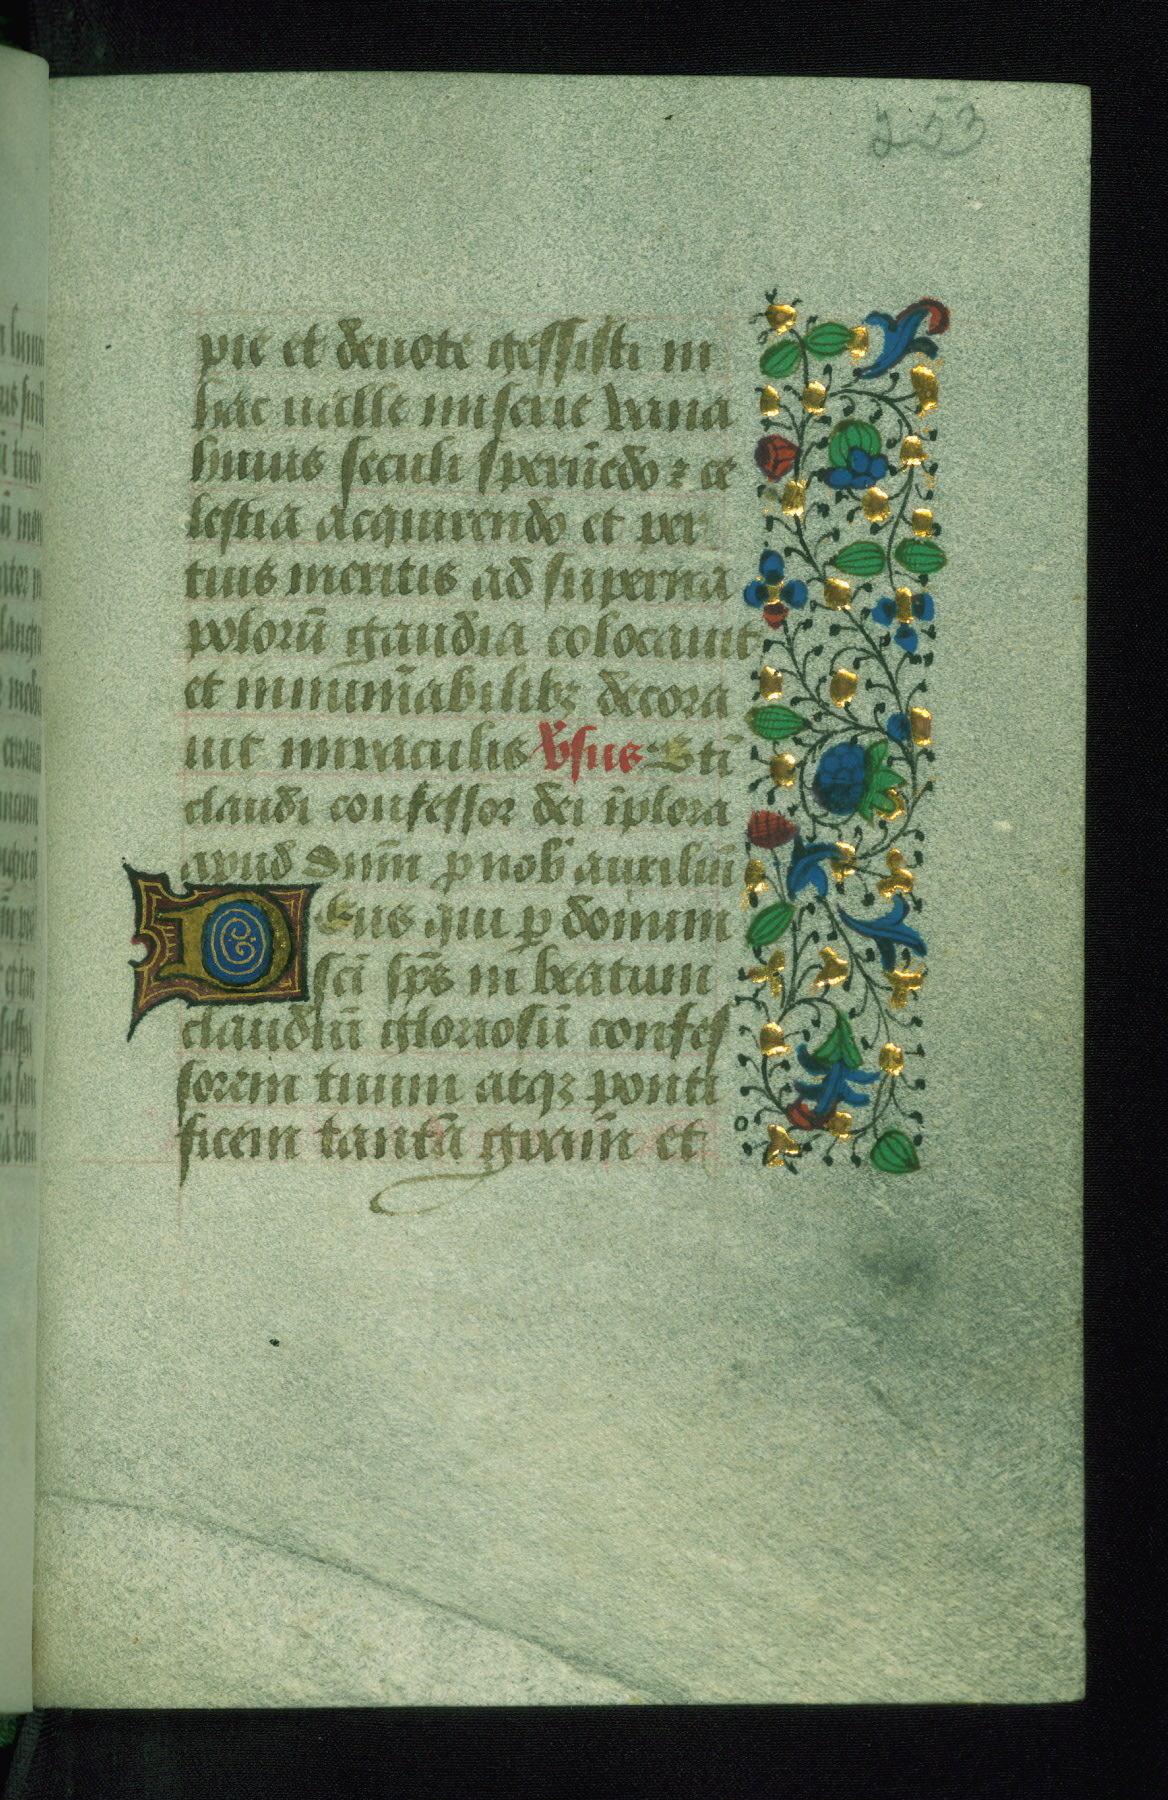 253
pie et deuote gessisti in
hac ualle miserie vana
huius seculi spernẽdo ⁊ ce
lestia acquirendo et per
tuis meritis ad superna
polorũ gaudia colocauit
et innumũabilibꝫ decora
uit miraculis v̾sus Btĩ
claudi confessor dei ĩplora
apud dnm̃ p nob̾ auxiliũ
Deus qui ꝑ donum
sc̃i sp̃s in beatum
claudiũ gloriosũ confes
sorem tuum atqꝫ ponti
ficem tantã gr̃am et